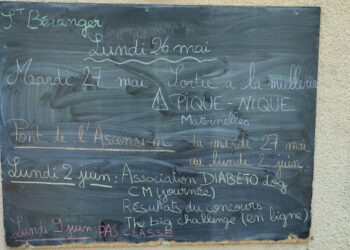 St Béranger
Lundi 26 mai
Mardi 27 mai Sortie à la miellerie
⚠ PIQUE-NIQUE
Maternelles
Pont de l'Ascension du mardi 27 mai
au lundi 2 juin
Lundi 2 juin: Association DIABETO dog
CM (journée)
Résultats du concours
The big challenge (en ligne)
Lundi 9 juin PAS CLASSE